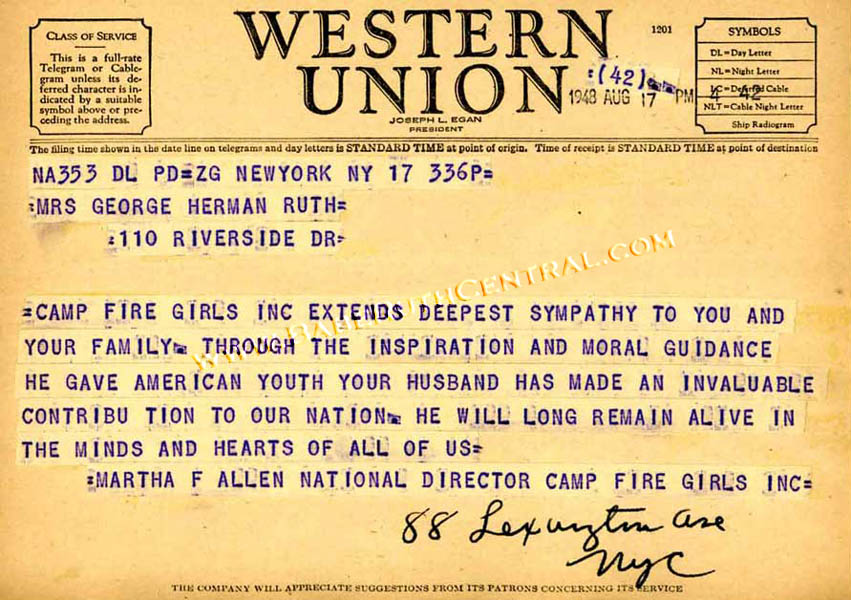 CLASS OF SERVICE
This is a full-rate
Telegram or Cable-
gram unless its de-
ferred character is in-
dicated by a suitable
symbol above or pre-
ceding the address.
WESTERN
UNION
JOSEPH L. EGAN
PRESIDENT
1201
(42)
1948 AUG 17 PM 4 42
SYMBOLS
DL=Day Letter
NL=Night Letter
LC=Deferred Cable
NLT=Cable Night Letter
Ship Radiogram
The filing time shown in the date line on telegrams and day letters is STANDARD TIME at point of origin. Time of receipt is STANDARD TIME at point of destination
NA353 DL PD=ZG NEWYORK NY 17 336P=
:MRS GEORGE HERMAN RUTH=
:110 RIVERSIDE DR=
=CAMP FIRE GIRLS INC EXTENDS DEEPEST SYMPATHY TO YOU AND
YOUR FAMILY= THROUGH THE INSPIRATION AND MORAL GUIDANCE
HE GAVE AMERICAN YOUTH YOUR HUSBAND HAS MADE AN INVALUABLE
CONTRIBU TION TO OUR NATION= HE WILL LONG REMAIN ALIVE IN
THE MINDS AND HEARTS OF ALL OF US=
=MARTHA F ALLEN NATIONAL DIRECTOR CAMP FIRE GIRLS INC=
88 Lexington Ave
NYC
THE COMPANY WILL APPRECIATE SUGGESTIONS FROM ITS PATRONS CONCERNING ITS SERVICE
WWW.BABERUTHCENTRAL.COM